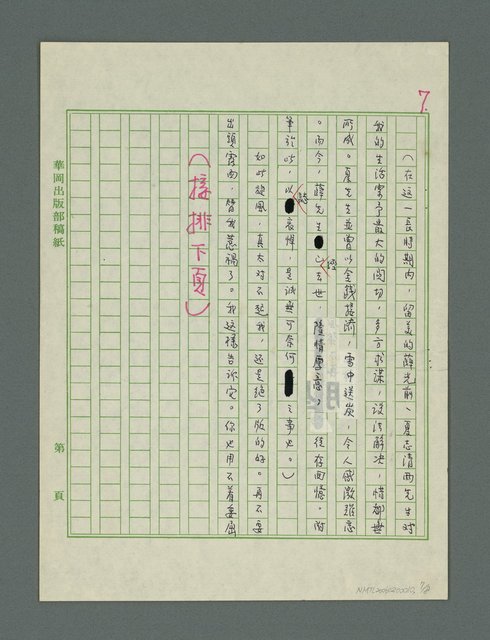 7.
（在這一長時期內，留美的薛光前、夏志清兩先生對
我的生活寄予最大的關切，多方求謀，設法解決，惜都無
所成。夏先生並曾以金錢接濟，雪中送炭，令人感激難忘
。而今，薛先生已去世，隆情厚意，徒存回憶。附
筆於此，以誌哀悼，是誠無可奈何之事也。）
如此旋風，真太對不起我，還是絕了版的好。再不要
出頭露面，替我惹禍了。我這樣告訴它。你也用不着委屈
（接排下頁）
華岡出版部稿紙
第 頁